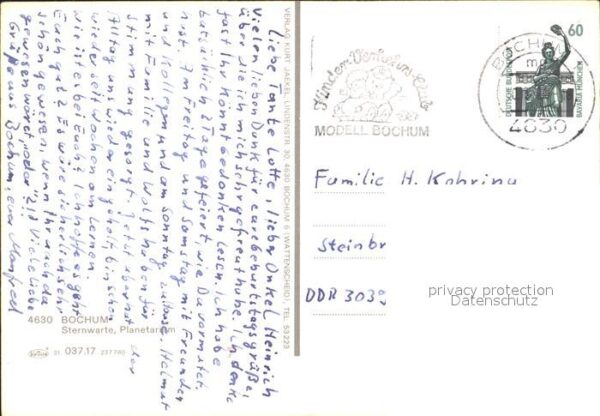 Liebe Tante Lotte, lieber Onkel Heinrich
Vielen lieben Dank für eure Geburtstagsgrüße,
über die ich mich sehr gefreut habe. Ich denke
fast Ihr könnt Gedanken lesen. Ich habe
tatsächlich 2 Tage gefeiert, wie Du vermutet
hast. Am Freitag und Samstag mit Freunden
und Kollegen und am Sonntag zuhause. Helmut
mit Familie und Wolfs haben für
Stimmung gesorgt. Jetzt aber ist der
Alltag uns wieder eingeholt, bin schon
wieder seit Wochen am Lernen.
Wie ist es bei Euch? Ich hoffe es geht
Euch gut? Es wäre sicherlich sehr
schön gewesen, wenn Ihr auch da
gewesen wärt, oder? Viele liebe
Grüße aus Bochum, euer Manfred
4630 BOCHUM
Sternwarte, Planetarium
21 037.17 237 780
VERLAG KURT JAEKEL, LINDENSTR. 30, 4630 BOCHUM 6 (WATTENSCHEID), TEL. 53 223
Kinder-Verkehrs-Club
MODELL BOCHUM
BOCHUM
4630
60
DEUTSCHE BUNDESPOST
BAVARIA MÜNCHEN
Familie H. Kohrina
Steinbr
DDR 3039
privacy protection
Datenschutz